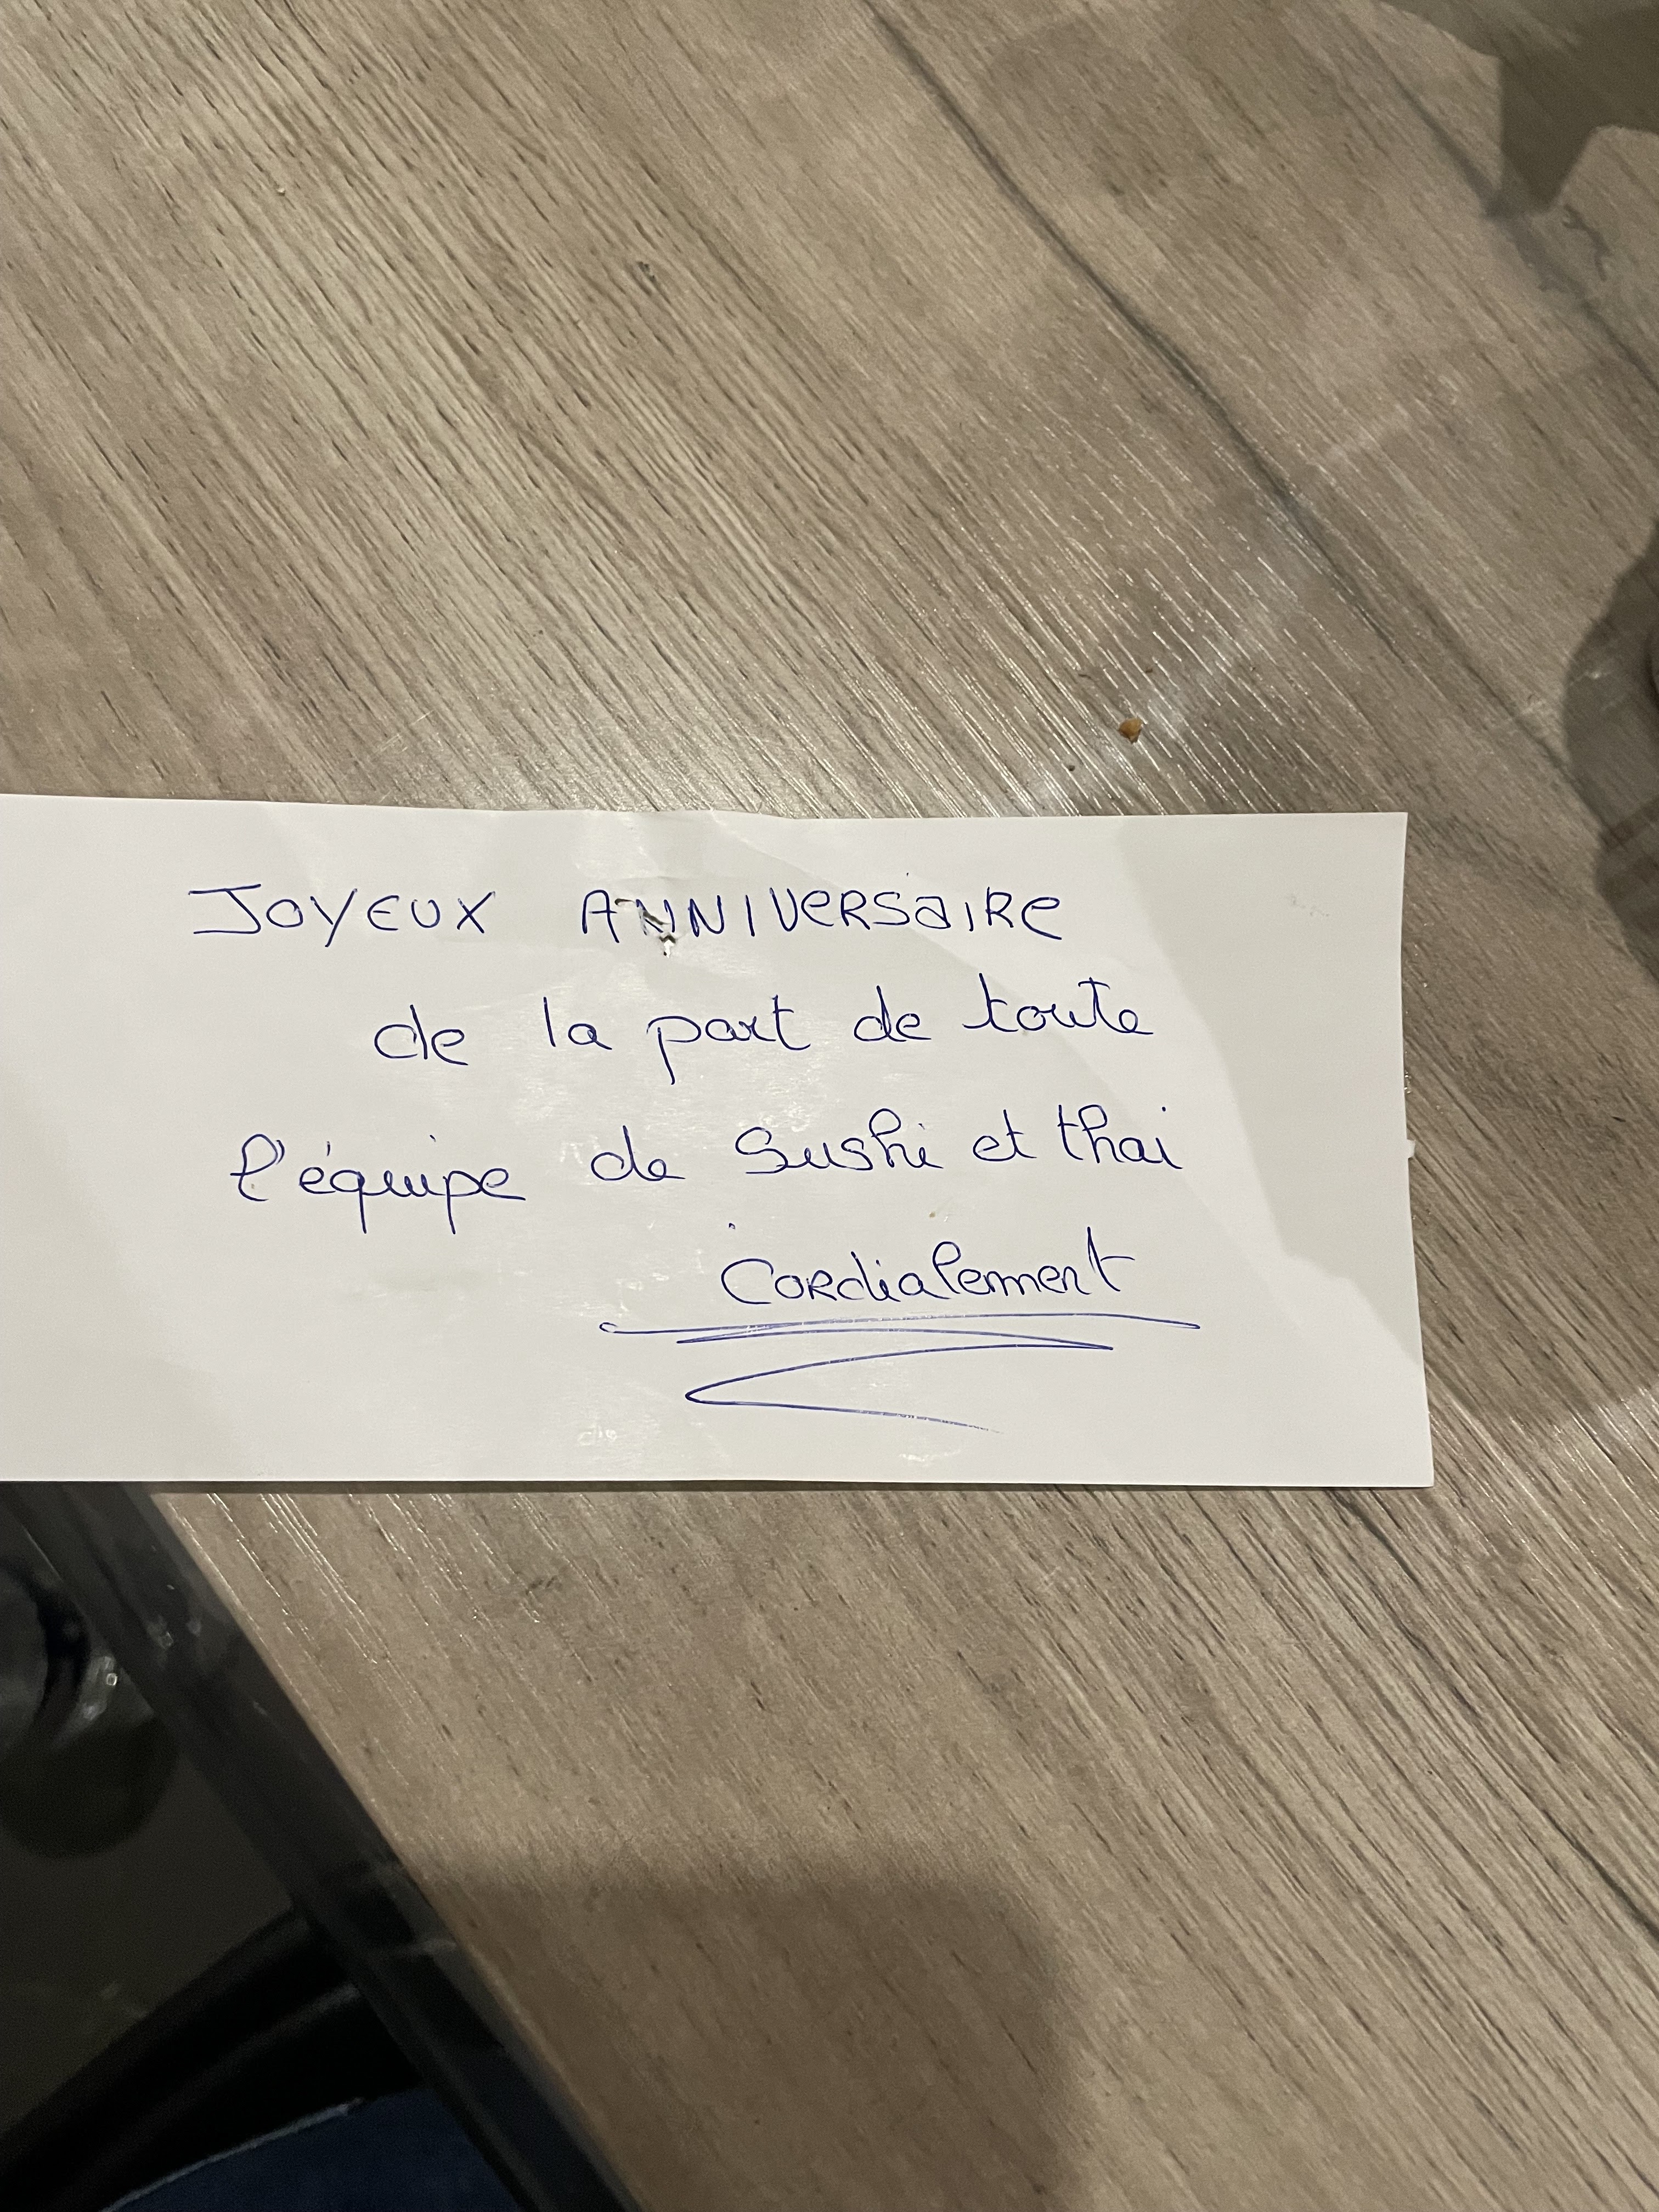 JOYEUX ANNIVERSAIRE
de la part de toute
l'équipe de Sushi et thai
Cordialement